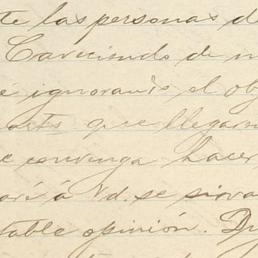 te las personas d
Careciendo de m
é ignorando el ob
que llegar
e convenga hacer
á Vd. se sirva
table opinión. D